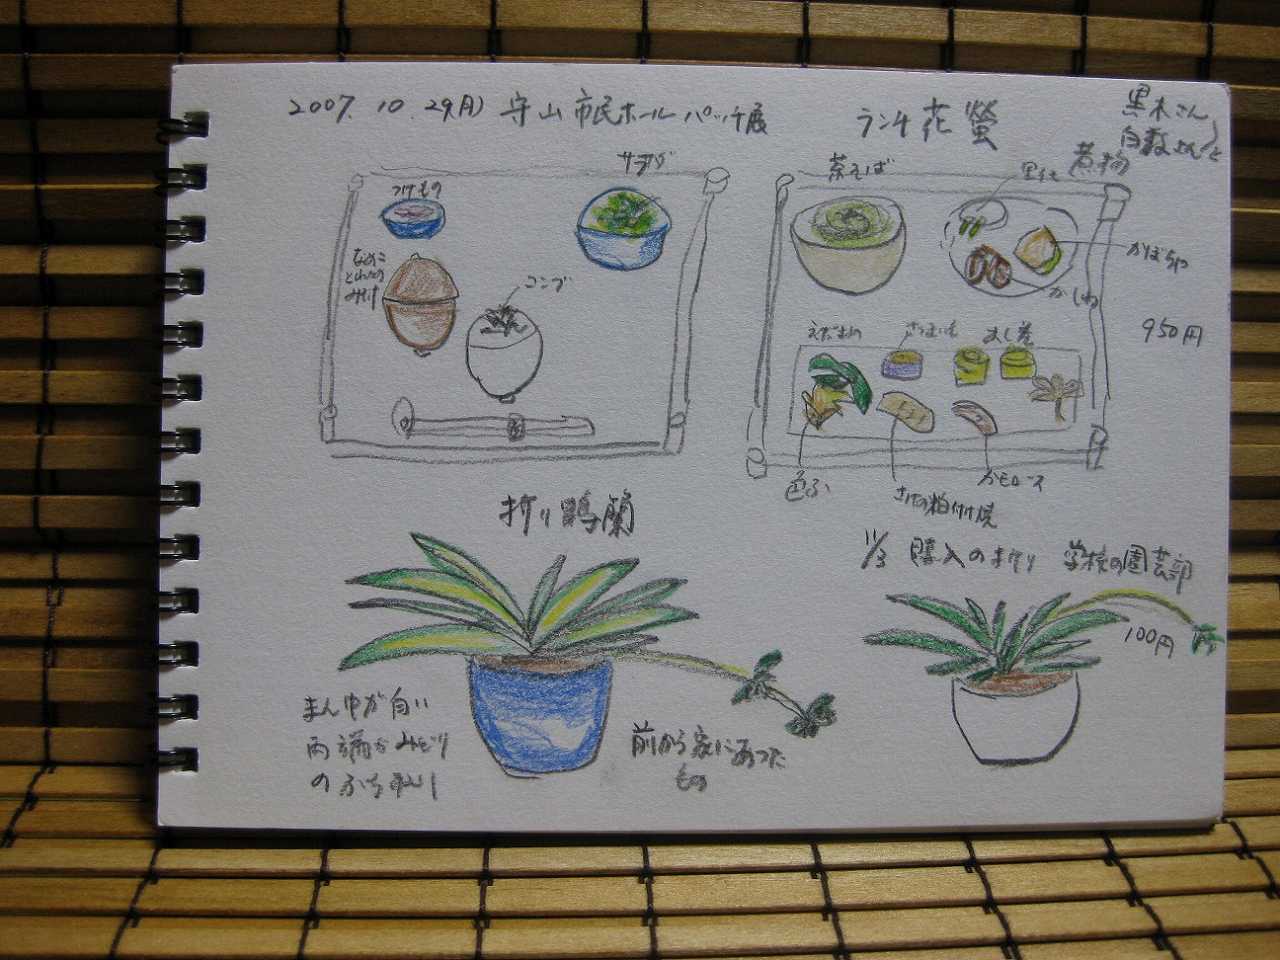 2007. 10. 29(月) 守山市民ホール パッチ展
ランチ 花螢
黒木さん
白数さんと
サラダ
つけもの
なめこ
とんたの
みそ汁
コンブ
茶そば
煮物
里イモ
かぼちゃ
かしわ
950円
えだまめ
さつまいも
だし巻
色ふ
さけの粕付け焼
かもロース
折り鶴蘭
まん中が白い
両端がみどり
のふち
前から家にあった
もの
11/3 購入のオリヅリ 学校の園芸部
100円